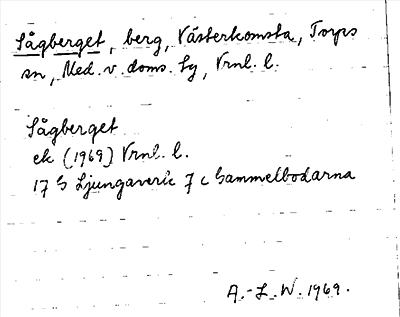 Sågberget, berg, Västerkomsta, Torps
sn, Med. v. doms. tg, Vrnl. l.
Sågberget
ek (1969) Vrnl. l.
17 G Ljungaverk 7 c Gammelbodarna
A.-L. W. 1969.